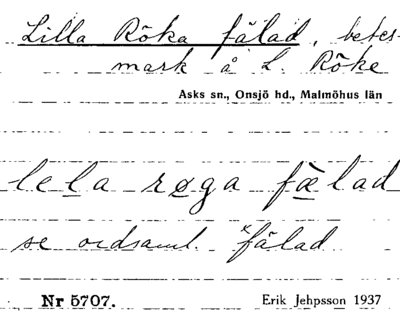 Lilla Röka fälad, betes-
mark å L. Röke
Asks sn., Onsjö hd., Malmöhus län
lela røga fælad
se ordsaml. ˣfälad
Nr 5707. Erik Jehpsson 1937